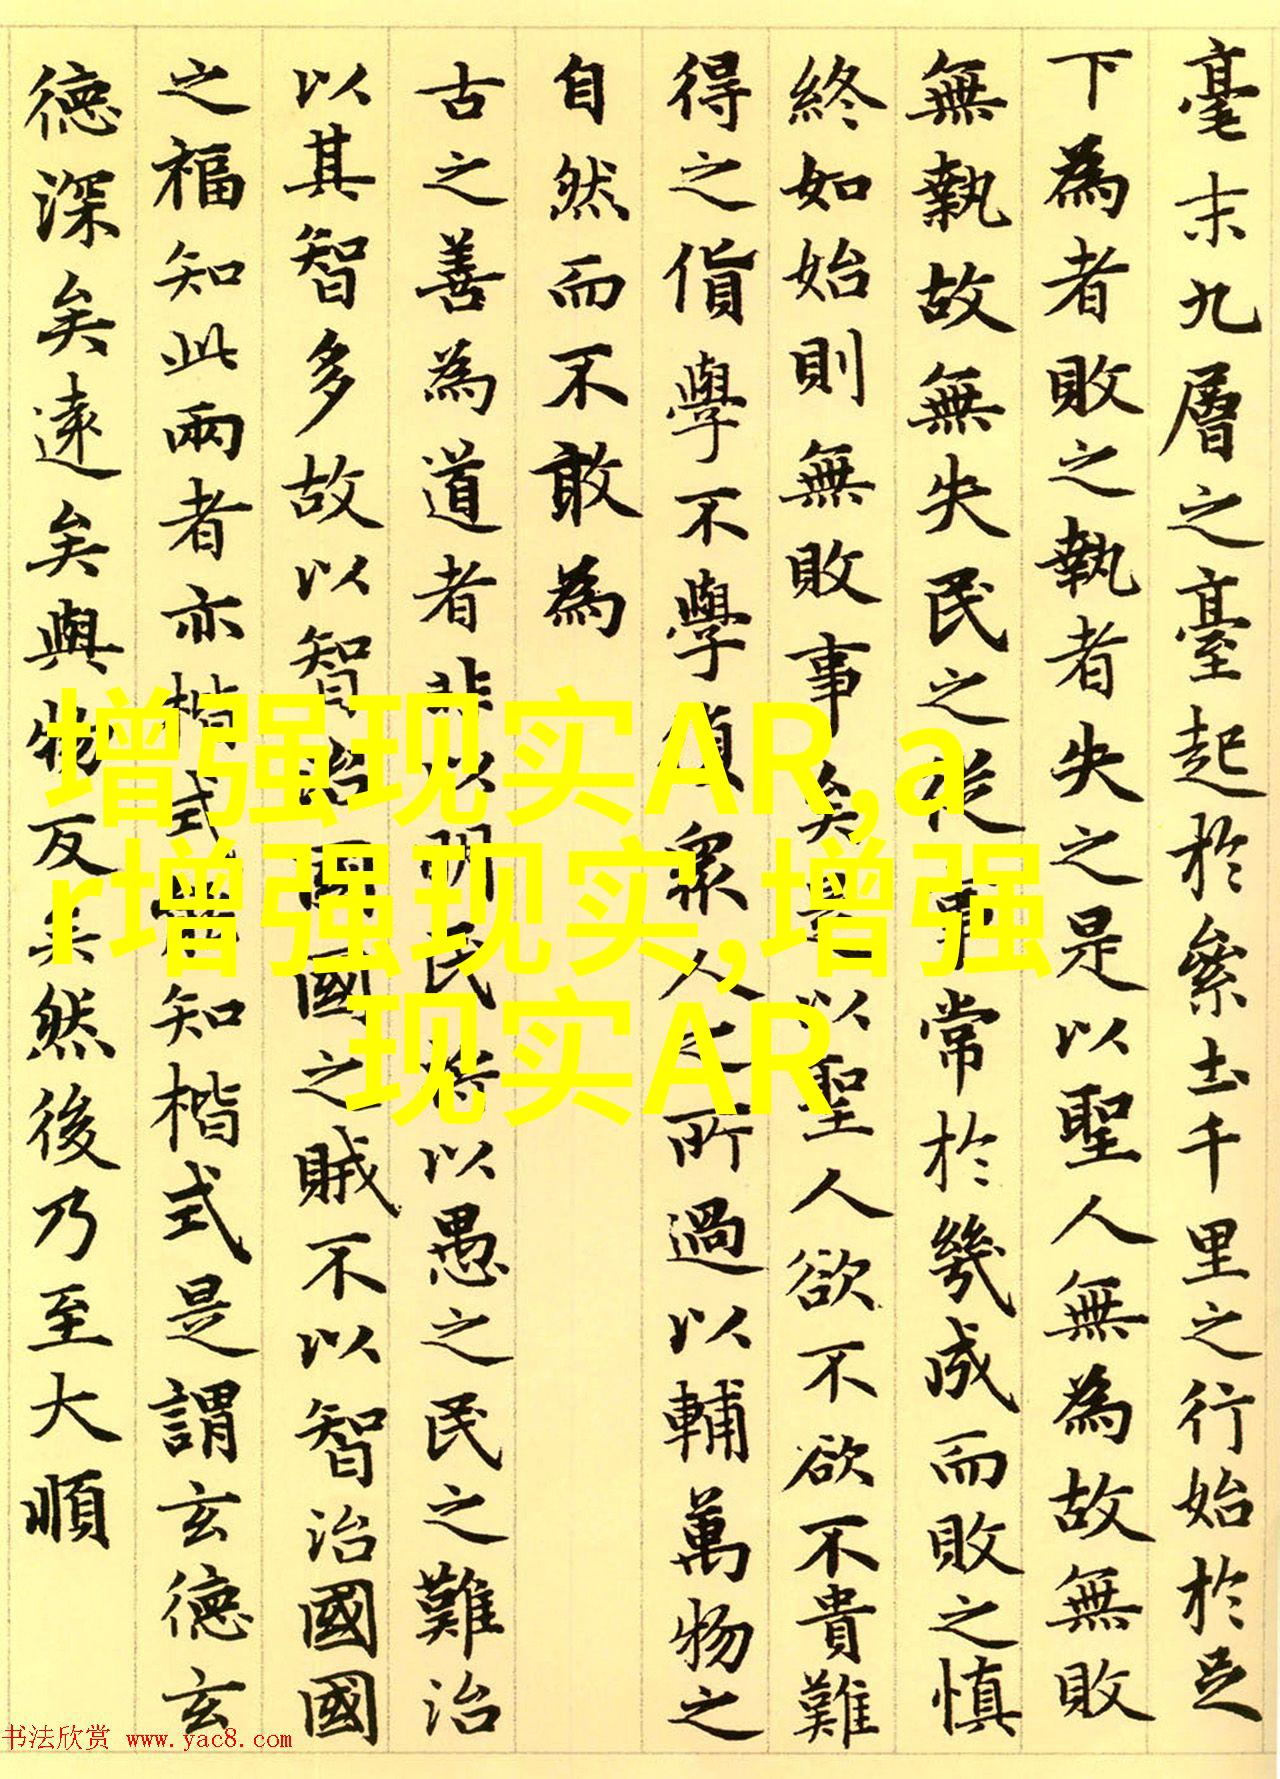 毫末九層之臺起於絫土千里之行始於足
下為者敗之執者失之是以聖人無為故無敗
無執故無失民之從事常於幾成而敗之慎
終如始則無敗事矣是以聖人欲不欲不貴難
得之貨學不學眾人之所過以輔萬物之
自然而不敢為
古之善為道者非以明民將以愚之民之難治
以其智多故以智治國國之賊不以智治國國
之福知此兩者亦楷式常知楷式是謂玄德玄
德深矣遠矣與物反矣然後乃至大順
增强现实AR,a
r增强现实,增强
现实AR
书法欣赏 www.yac8.com